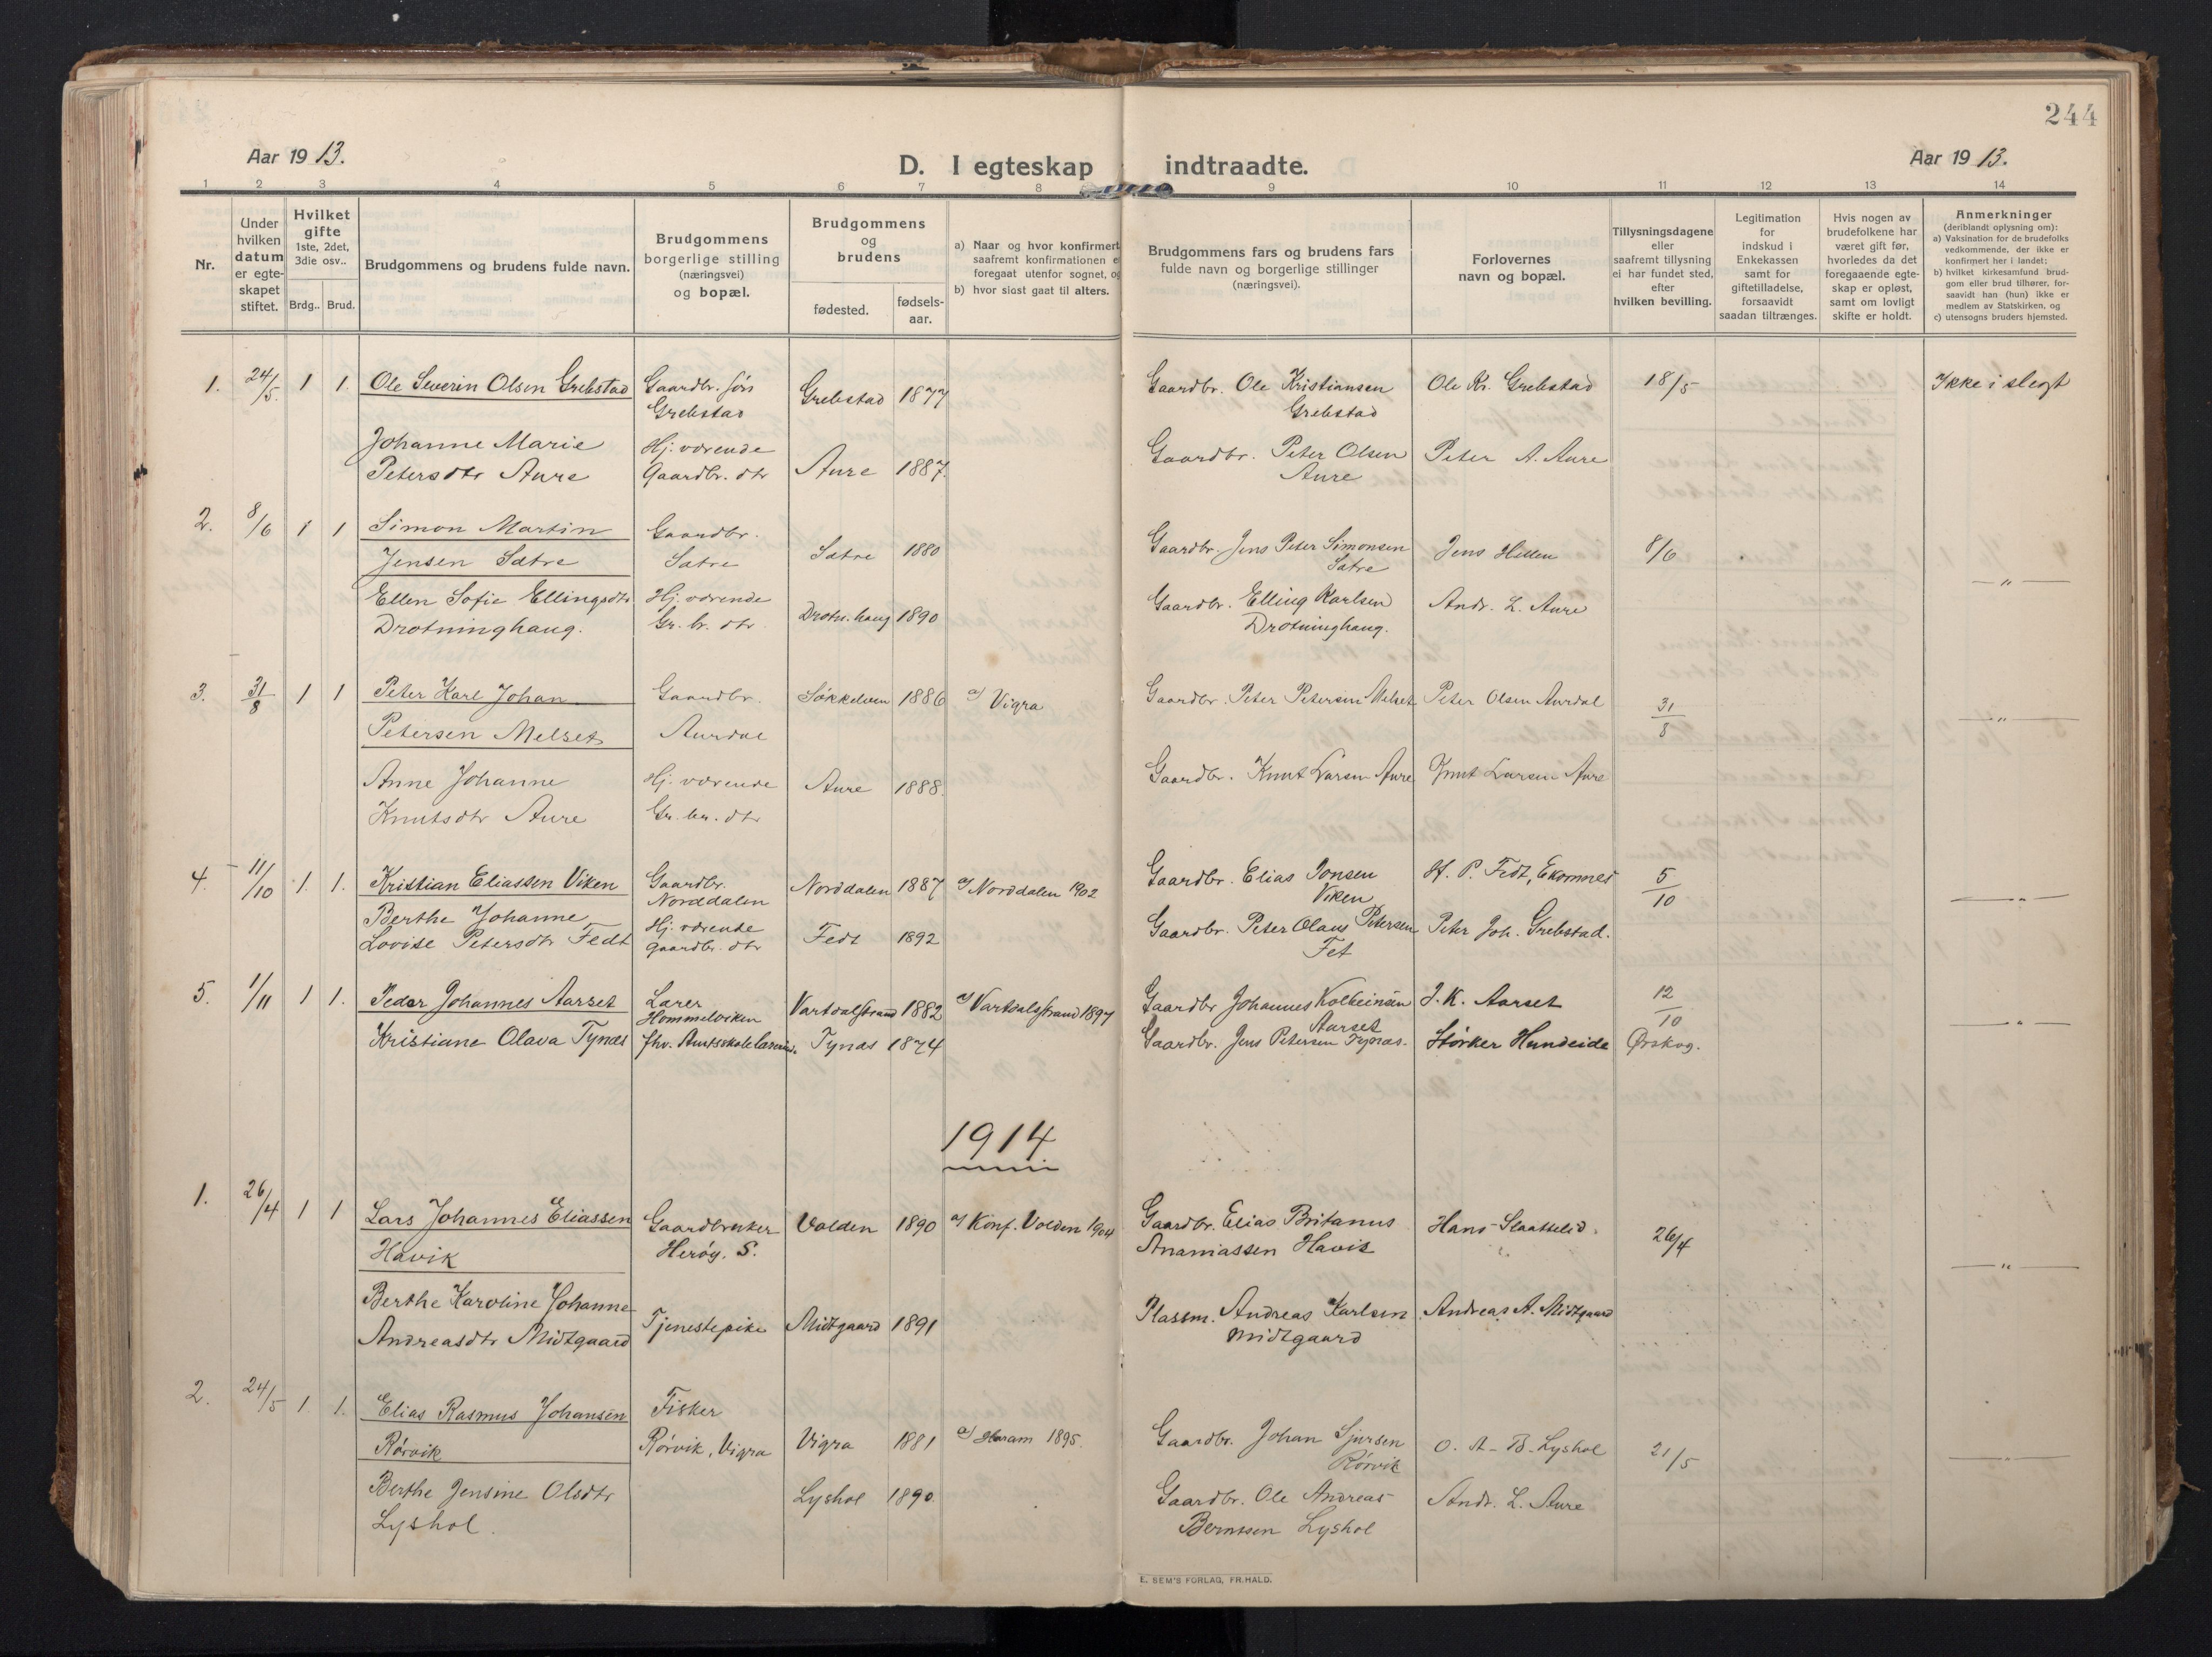 244
Aar 1913.
D. I egteskap indtraadte.
Aar 1913.
1 2 3 4 5 6 7 8 9 10 11 12 13 14
Nr.
Under
hvilken
datum
er egte-
skapet
stiftet.
Hvilket
gifte
1ste, 2det,
3die osv..
Brdg.. Brud.
Brudgommens og brudens fulde navn.
Brudgommens
borgerlige stilling
(næringsvei)
og bopæl.
Brudgommens
og
brudens
fødested.
fødsels-
aar.
a) Naar og hvor konfirmert
saafremt konfirmationen e
foregaat utenfor sognet, og
b) hvor sidst gaat til alters.
Brudgommens fars og brudens fars
fulde navn og borgerlige stillinger
(næringsvei).
Forlovernes
navn og bopæl.
Tillysningsdagene
eller
saafremt tillysning
ei har fundet sted,
efter
hvilken bevilling.
Legitimation
for
indskud i
Enkekassen
samt for
giftetilladelse,
forsaavidt
saadan tiltrænges.
Hvis nogen av
brudefolkene har
været gift før,
hvorledes da det
foregaaende egte-
skap er opløst,
samt om lovligt
skifte er holdt.
Anmerkninger
(deriblandt oplysning om):
a) Vaksination for de brudefolks
vedkommende, der ikke er
konfirmert her i landet;
b) hvilket kirkesamfund brud-
gom eller brud tilhører, for-
saavidt han (hun) ikke er
medlem av Statskirken, og
c) utensogns bruders hjemsted.
1. 24/5. 1 1. Ole Severin Olsen Grebstad Gaardbr. søn Grebstad 1877 Gaardbr. Ole Kristiansen Ole Kr. Grebstad 18/5 Ikke i slegt
Grebstad Grebstad
Johanne Marie Hj. værende Gaardbr. Peter Olsen Peter A. Aure
Petersdtr Aure Gaardbr. dtr Aure 1887. Aure
2. 8/6 1 1 Simon Martin Gaardbr.
Jensen Sætre Sætre Sætre 1880 Gaardbr. Jens Peter Simonsen Jens Hellen 8/6
Sætre — " —
Ellen Sofie Ellingsdtr Hj. værende Drotn. haug 1890 Gaardbr. Elling Karlsen Andr. L. Aure
Drotninghaug. Gr. br. dtr. Drotninghaug.
3. 31/8 1 1 Peter Karl Johan Gaardbr. Søkkelven 1886 a) Vigra Gaardbr. Peter Petersen Melset Peter Olsen Aurdal 31/8 — " —
Petersen Melset Aurdal
Anne Johanne Hj. værende Aure 1888. Gaardbr. Knut Larsen Aure Knut Larsen Aure
Knutsdtr Aure Gr. br. dtr
4. 11/10 1. 1. Kristian Eliassen Viken Gaardbr. Norddalen 1887 a) Norddalen 1902 Gaardbr. Elias Jonsen H. P. Fedt, Ekornnes 5/10 — " —
Norddalen Viken
Berthe Johanne Hj. værende
Lovise Petersdtr Fedt gaardbr. dtr Fedt 1892 Gaardbr. Peter Olaus Petersen Peter Joh. Grebstad.
Fet
5. 1/11 1 1. Peder Johannes Aarset Lærer Vartdalstrand 1882 a) Vartdalstrand 1897 Gaardbr Johannes Kolbeinsen J. K. Aarset 12/10 — " —
Hommelviken Aarset
Kristiane Olava Tynæs fhv. Amtsskolelærerinde Tynæs 1874 Gaardbr. Jens Petersen Tynæs. Størker Hundeide Ørskog.
1914
1. 26/4 1 1 Lars Johannes Eliassen Gaardbruker Volden 1890 a) Konf. Volden 1904 Gaardbr. Elias Britanus Hans Slaattelid. 26/4
Håvik Herøy. S. Ananiassen Havik — " —
Berthe Karoline Johanne Tjenestepike Midtgaard 1891 Plassm. Andreas Karlsen Andreas A. Midtgaard
Andreasdtr Midtgaard Midtgaard
2. 24/5 1. 1. Elias Rasmus Johansen Fisker
Rørvik Rørvik, Vigra Vigra 1881 a) Haram 1895. Gaardbr. Johan Sjursen O. A. B. Lyshol 21/5 — " —
Rørvik
Berthe Jensine Olsdtr Lyshol 1890 Gaardbr. Ole Andreas Andr. L. Aure
Lyshol. Berntsen Lyshol
E. SEM'S FORLAG, FR.HALD.